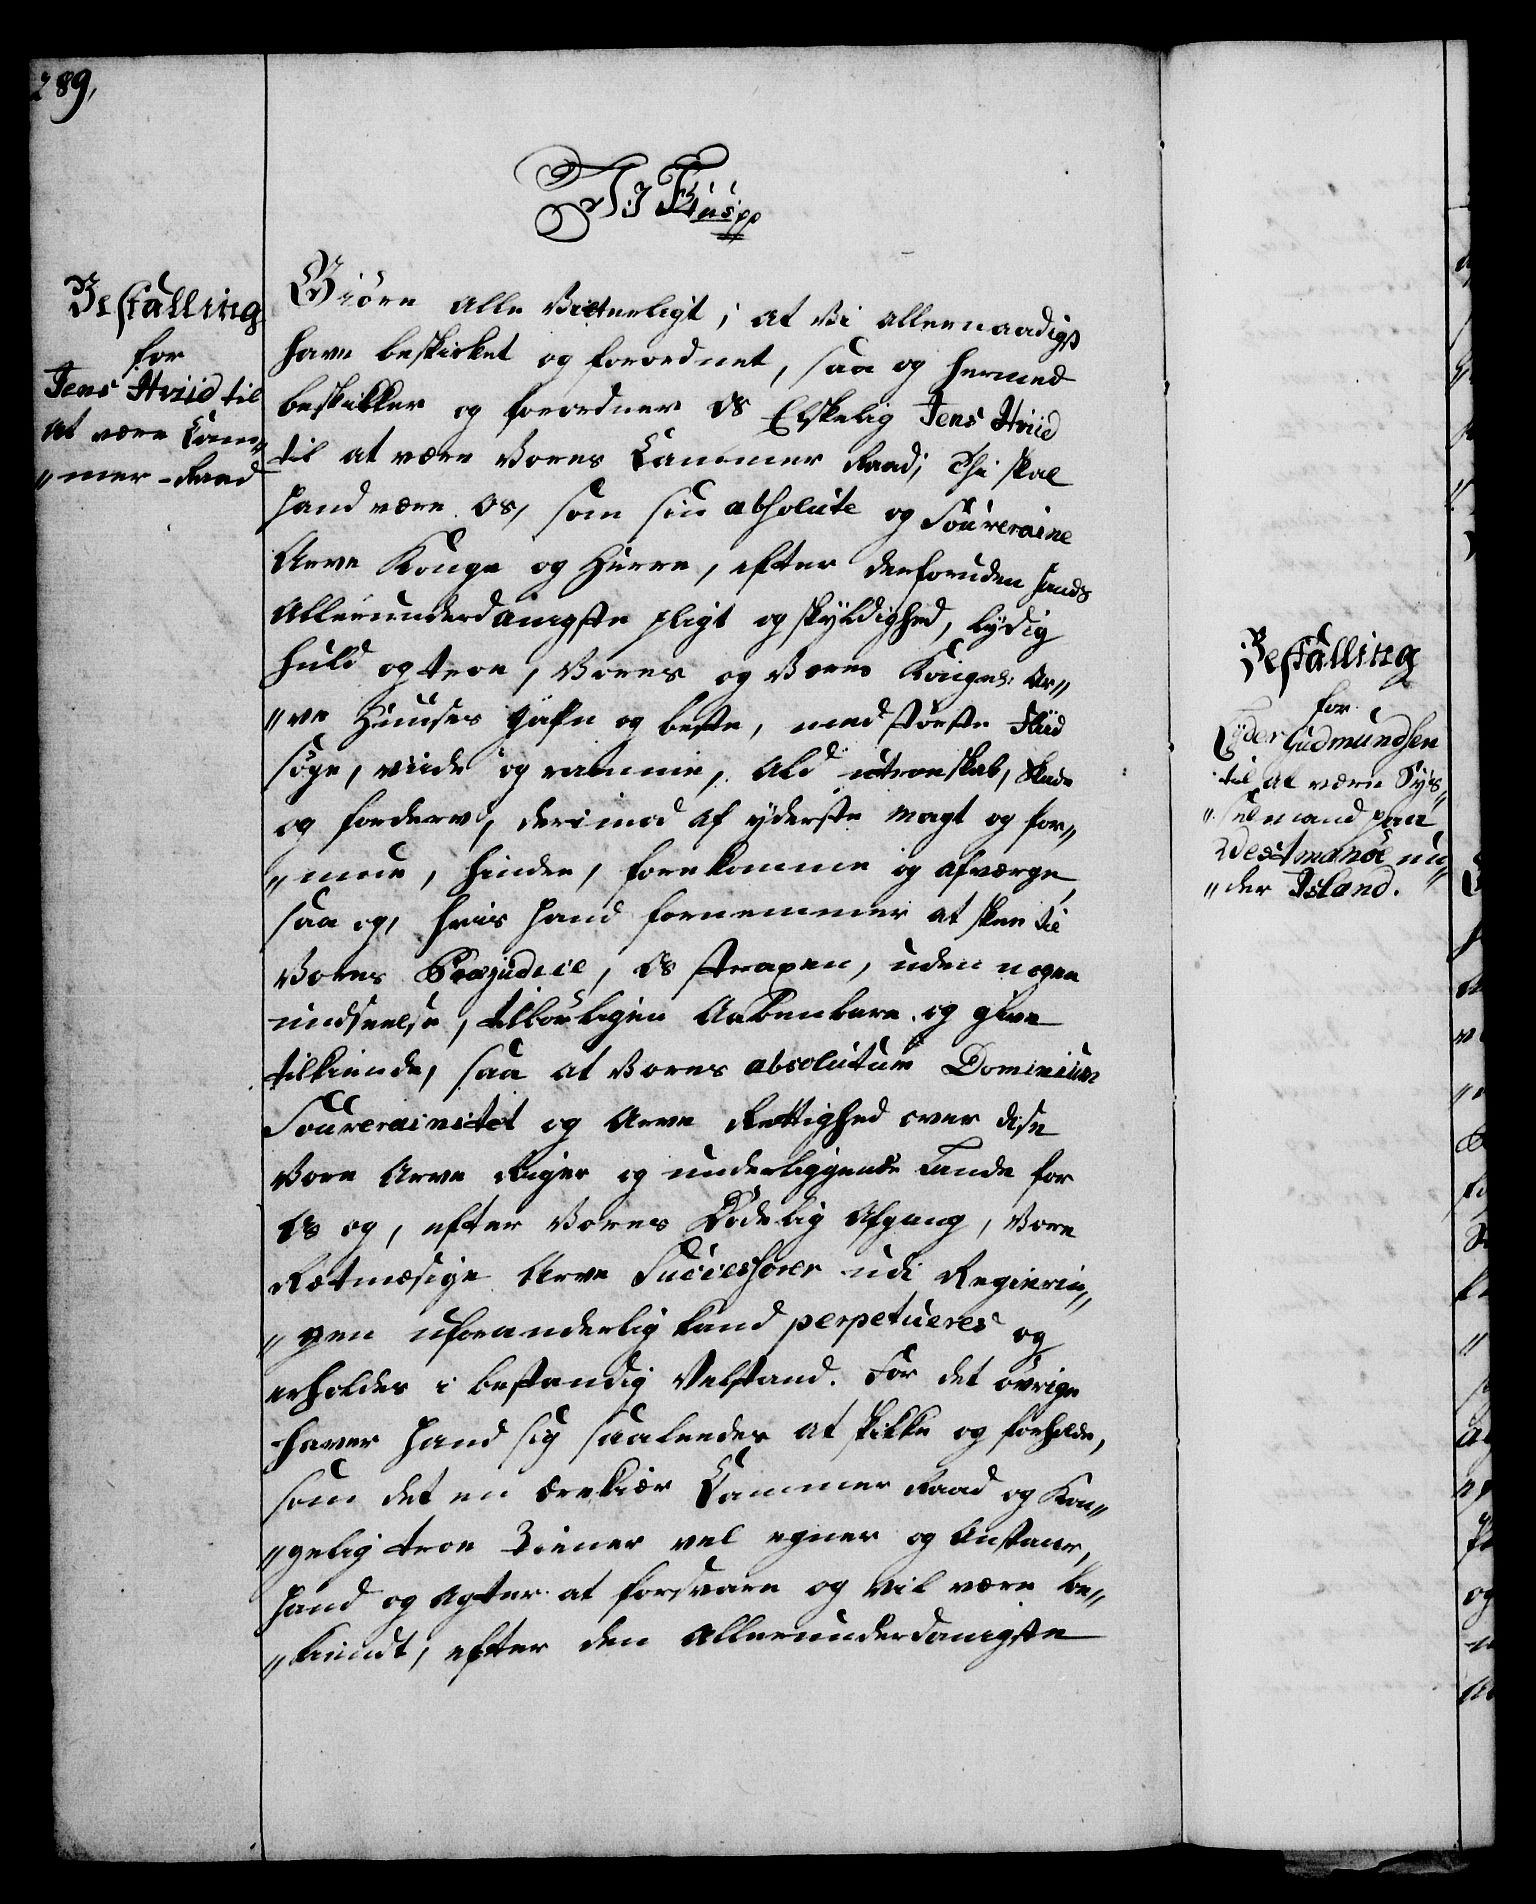 289,
Bestalling
for
Jens Hviid til
at være Cam„
„mer-Raad
Giøre alle Vitterligt, at Vi allernaadigst
have beskikket og forordnet, saa og hermed
beskikker og forordner Os Elskelig Jens Hviid
til at være Vores Cammer Raad; Thi skal
hand være Os, som sin absolute og Souveraine
Arve Konge og Herre, efter derforuden hands
Allerunderdanigste pligt og skyldighed, lydig
huld og troe, Vores og Vores Kongel: Ar„
„ve Huuses Gafn og beste, med største Fliid
søge, viide og ramme, Ald utroeskab, Skade
og forderv, derimod af yderste magt og for„
„mue, hindre, forekomme og afværge,
saa og, hvis hand fornemmer at skee til
Vores Præjudice, Os straxen, uden nogen
undseelse, tilbørligen Aabenbare og give
tilkiende, saa at Vores absolutum Dominium
Souverainitet og Arve Rettighed over disse
Vore Arve Riger og underliggende Lande for
Os og, efter Vores Dødelig Afgang, Vore
Retmæsige Arve Successorer udi Regierin„
„gen uforanderlig kand perpetueres og
erholdes i bestandig Velstand. For det øvrige
haver hand sig saaleedes at skikke og forholde,
som det en ærekier Cammer Raad og Kon„
„gelig troe Tiener vel egner og Anstaar,
hand og agter at forsvare og vil være be„
„kiendt, efter den Allerunderdanigste
Bestalling
for
Gudmundsen
til at være Sys„
„selmand paa
Westmanøe un„
„der Island.